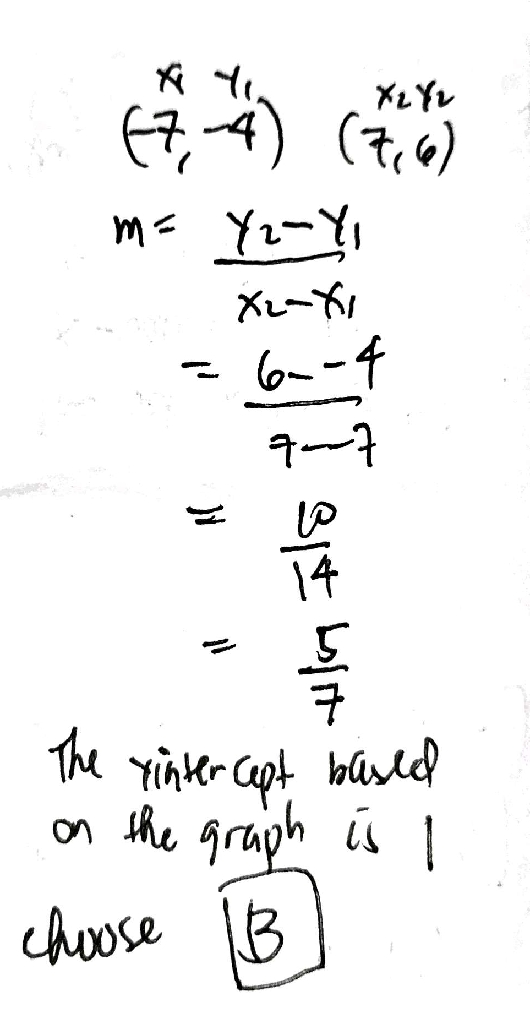 x1 y1 x2 y2
(-7, -4) (7, 6)
m = y2 - y1
x2 - x1
= 6 - -4
7 - -7
= 10
14
= 5
7
The yintercept based
on the graph is 1
choose B